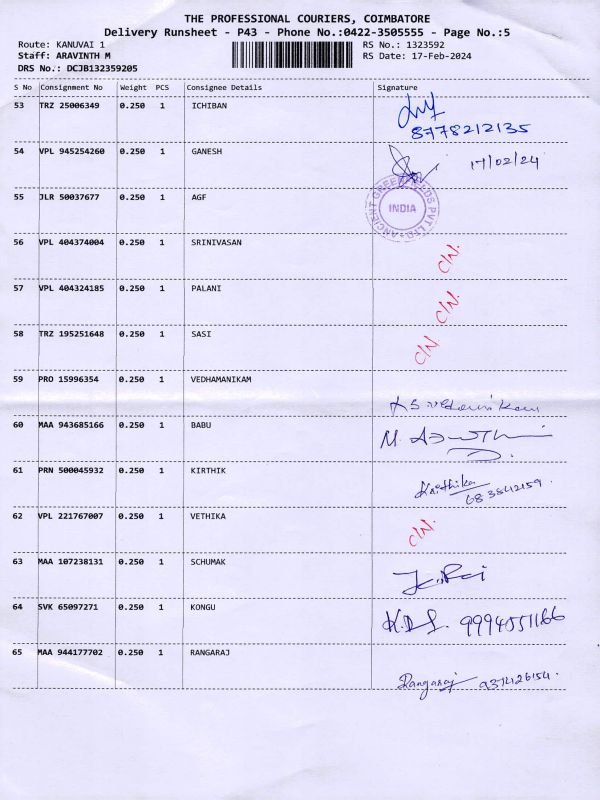 THE PROFESSIONAL COURIERS, COIMBATORE
Delivery Runsheet - P43 - Phone No.:0422-3505555 - Page No.:5
Route: KANUVAI 1 RS No.: 1323592
Staff: ARAVINTH M RS Date: 17-Feb-2024
DRS No.: DCJB132359205
S No Consignment No Weight PCS Consignee Details Signature
53 TRZ 25006349 0.250 1 ICHIBAN
8778212135
54 VPL 945254260 0.250 1 GANESH 17/02/24
55 JLR 50037677 0.250 1 AGF ANCIENT GREENFIELDS PVT LTD INDIA
56 VPL 404374004 0.250 1 SRINIVASAN C/N.
57 VPL 404324185 0.250 1 PALANI C/N.
58 TRZ 195251648 0.250 1 SASI C/N.
59 PRO 15996354 0.250 1 VEDHAMANIKAM
60 MAA 943685166 0.250 1 BABU
61 PRN 500045932 0.250 1 KIRTHIK Krithika
62 VPL 221767007 0.250 1 VETHIKA C/N.
63 MAA 107238131 0.250 1 SCHUMAK
64 SVK 65097271 0.250 1 KONGU
65 MAA 944177702 0.250 1 RANGARAJ
Rangaraj